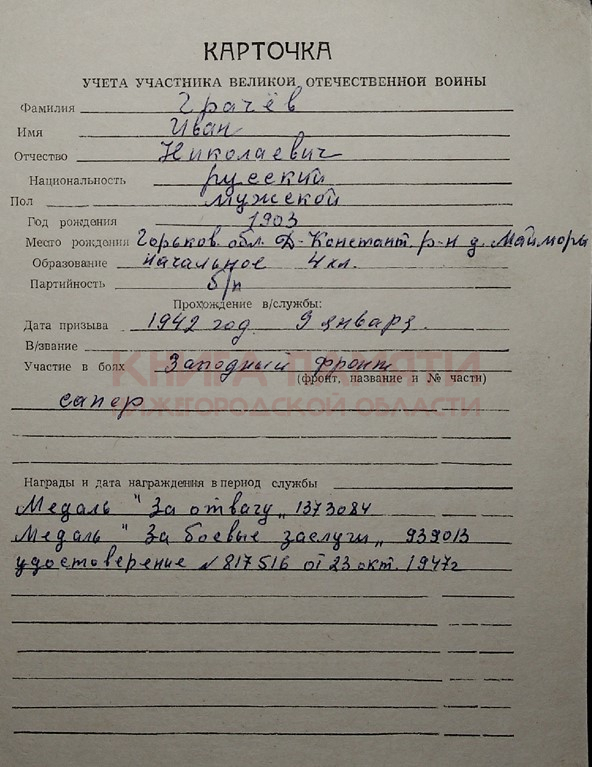 КАРТОЧКА
УЧЕТА УЧАСТНИКА ВЕЛИКОЙ ОТЕЧЕСТВЕННОЙ ВОЙНЫ
Фамилия Грачёв
Имя Иван
Отчество Николаевич
Национальность русский
Пол мужской
Год рождения 1903
Место рождения Горьков. обл. Д-Констант. р-н д. Майморы
Образование начальное 4 кл.
Партийность б/п
Прохождение в/службы:
Дата призыва 1942 год 9 январь.
В/звание
Участие в боях Западный фронт
(фронт, название и № части)
КНИГА ПАМЯТИ
сапер
НИЖЕГОРОДСКОЙ ОБЛАСТИ
Награды и дата награждения в период службы
Медаль "За отвагу" 1373084
Медаль "За боевые заслуги" 939013
удостоверение № 817516 от 23 окт. 1947г